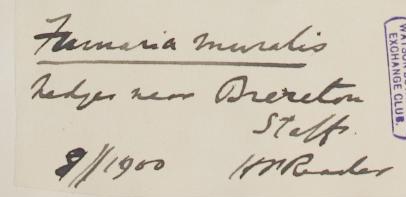 Fumaria muralis
hedges near Brereton
Staffs.
8//1900 HP Reader
WATSON
EXCHANGE CLUB.